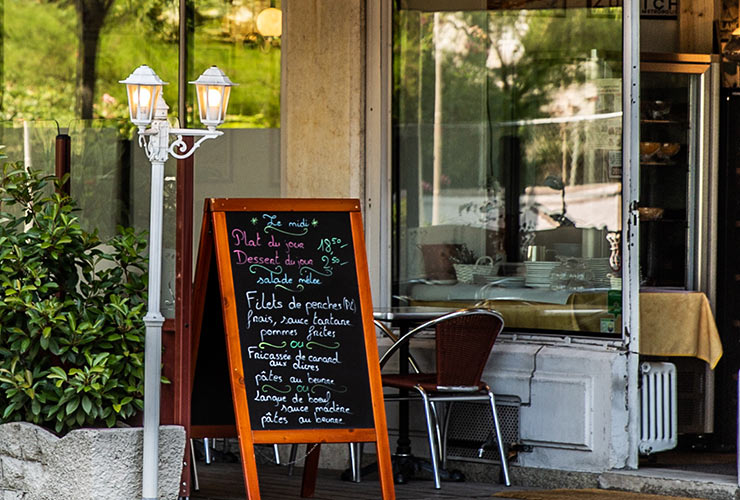 Le midi
Plat du jour 18.50
Dessert du jour 2.50
salade mêlée
Filets de perches (Pl)
frais, sauce tartare
pommes frites
ou
Fricassée de canard
aux olives
pâtes au beurre
ou
Langue de boeuf
sauce madère
pâtes au beurre